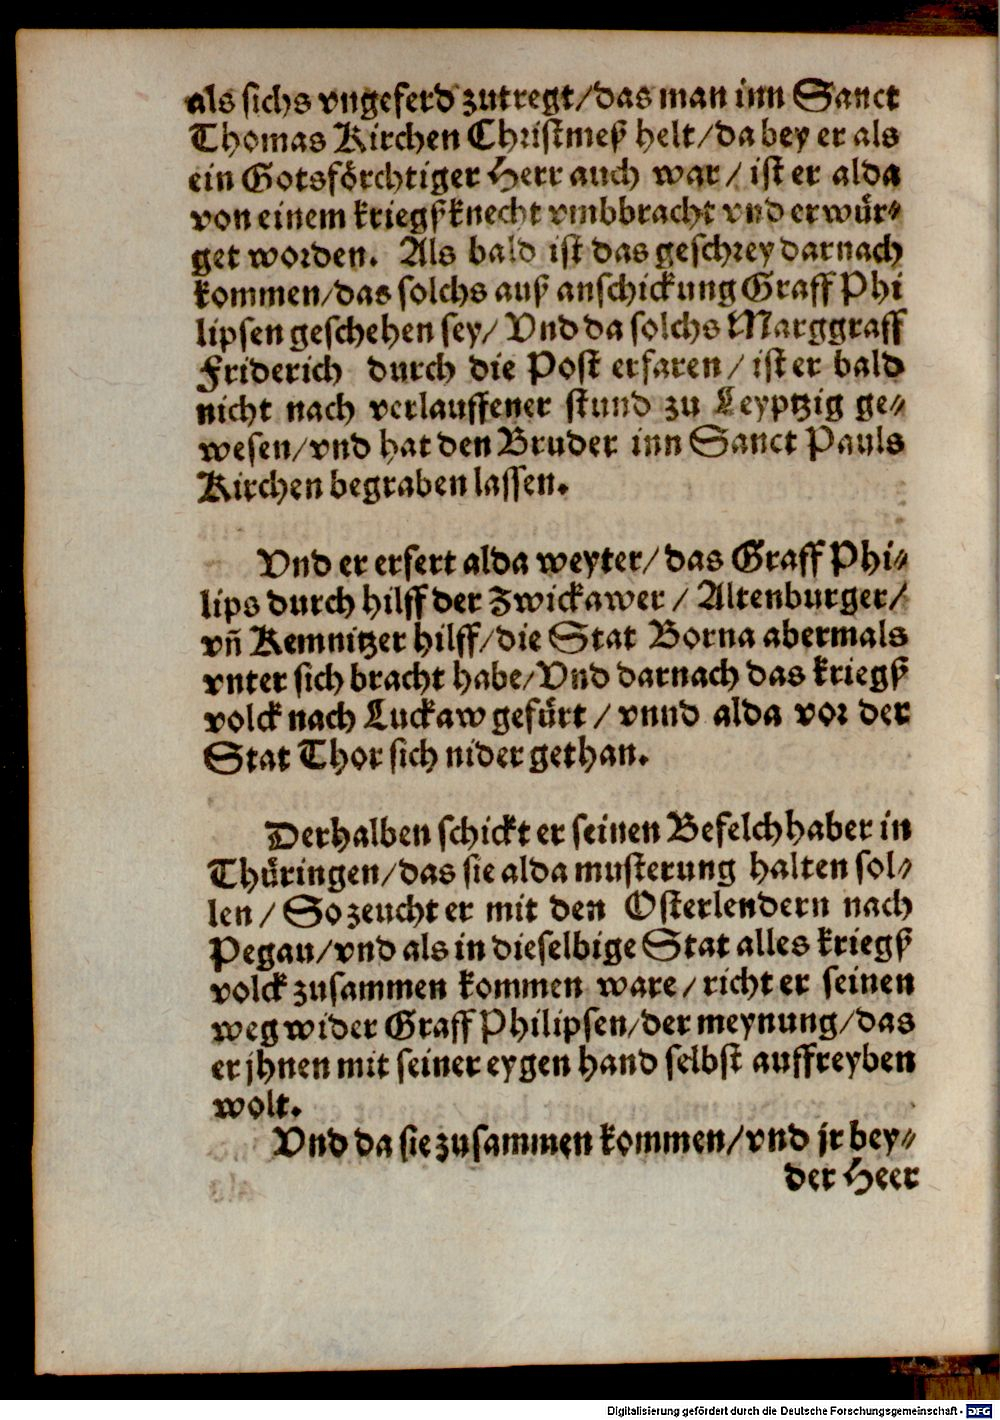 als sichs vngeferd zutregt/das man inn Sanct
Thomas Kirchen Christmeß helt/da bey er als
ein Gotsförchtiger Herr auch war/ ist er alda
von einem kriegßknecht vmbbracht vnd erwür⸗
get worden. Als bald ist das geschrey darnach
kommen/das solchs auß anschickung Graff Phi
lipsen geschehen sey/ Vnd da solchs Marggraff
Friderich durch die Post erfaren/ ist er bald
nicht nach verlauffener stund zu Leyptzig ge⸗
wesen/vnd hat den Bruder inn Sanct Pauls
Kirchen begraben lassen.
Vnd er erfert alda weyter/das Graff Phi⸗
lips durch hilff der Zwickawer/ Altenburger/
vñ Kemnitzer hilff/die Stat Borna abermals
vnter sich bracht habe/Vnd darnach das kriegß
volck nach Luckaw gefürt/ vnnd alda vor der
Stat Thor sich nider gethan.
Derhalben schickt er seinen Befelchhaber in
Thüringen/das sie alda musterung halten sol⸗
len/ So zeucht er mit den Osterlendern nach
Pegau/vnd als in dieselbige Stat alles kriegß
volck zusammen kommen ware/richt er seinen
weg wider Graff Philipsen/der meynung/das
er jhnen mit seiner eygen hand selbst auffreyben
wolt.
Vnd da sie zusammen kommen/vnd jr bey⸗
der Heer
Digitalisierung gefördert durch die Deutsche Forschungsgemeinschaft - DFG